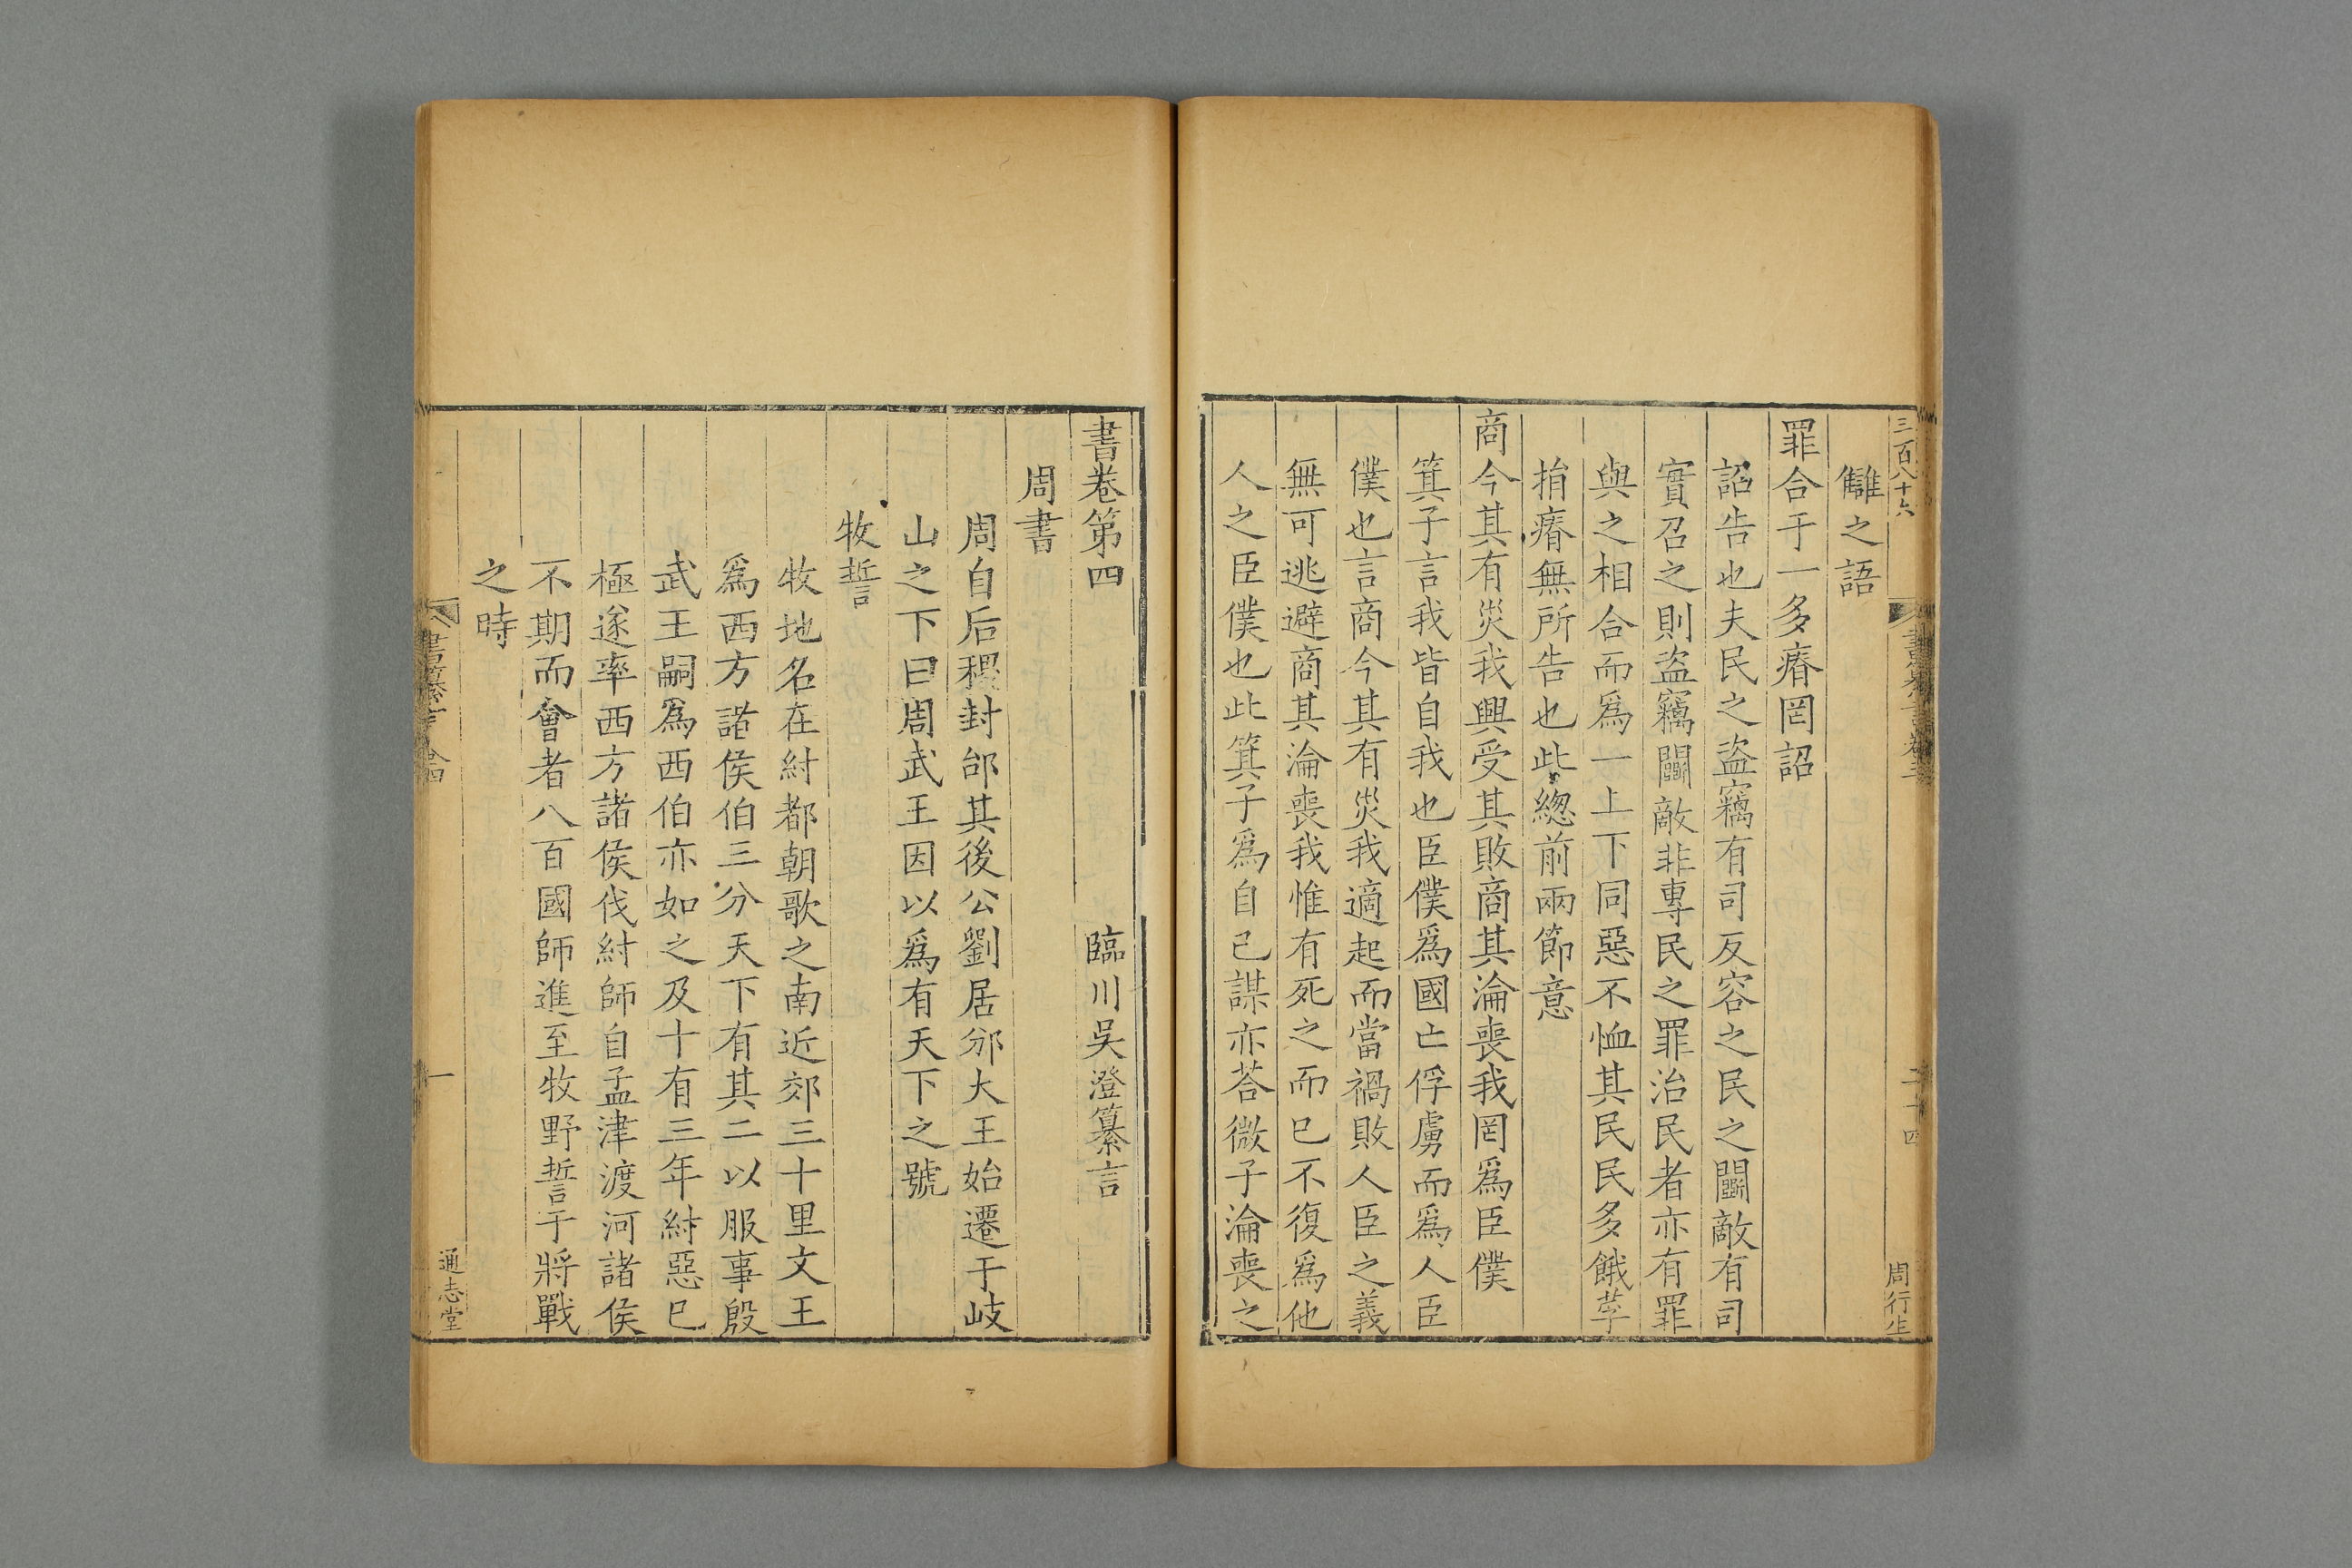 三百八十六
二十四
周行生
讎之語
罪合于一多瘠罔詔
詔告也夫民之盗竊有司反容之民之鬭敵有司
實召之則盗竊鬭敵非專民之罪治民者亦有罪
與之相合而爲一上下同惡不恤其民民多餓莩
捐瘠無所告也此緫前兩節意
商今其有災我興受其敗商其淪喪我罔爲臣僕
箕子言我皆自我也臣僕爲國亡俘虜而爲人臣
僕也言商今其有災我適起而當禍敗人臣之義
無可逃避商其淪喪我惟有死之而已不復爲他
人之臣僕也此箕子爲自己謀亦荅微子淪喪之
書卷第四
臨川吳澄纂言
周書
周自后稷封邰其後公劉居邠大王始遷于岐
山之下曰周武王因以爲有天下之號
牧誓
牧地名在紂都朝歌之南近郊三十里文王
爲西方諸侯伯三分天下有其二以服事殷
武王嗣爲西伯亦如之及十有三年紂惡已
極遂率西方諸侯伐紂師自孟津渡河諸侯
不期而會者八百國師進至牧野誓于將戰
之時
書纂言卷四
一
通志堂